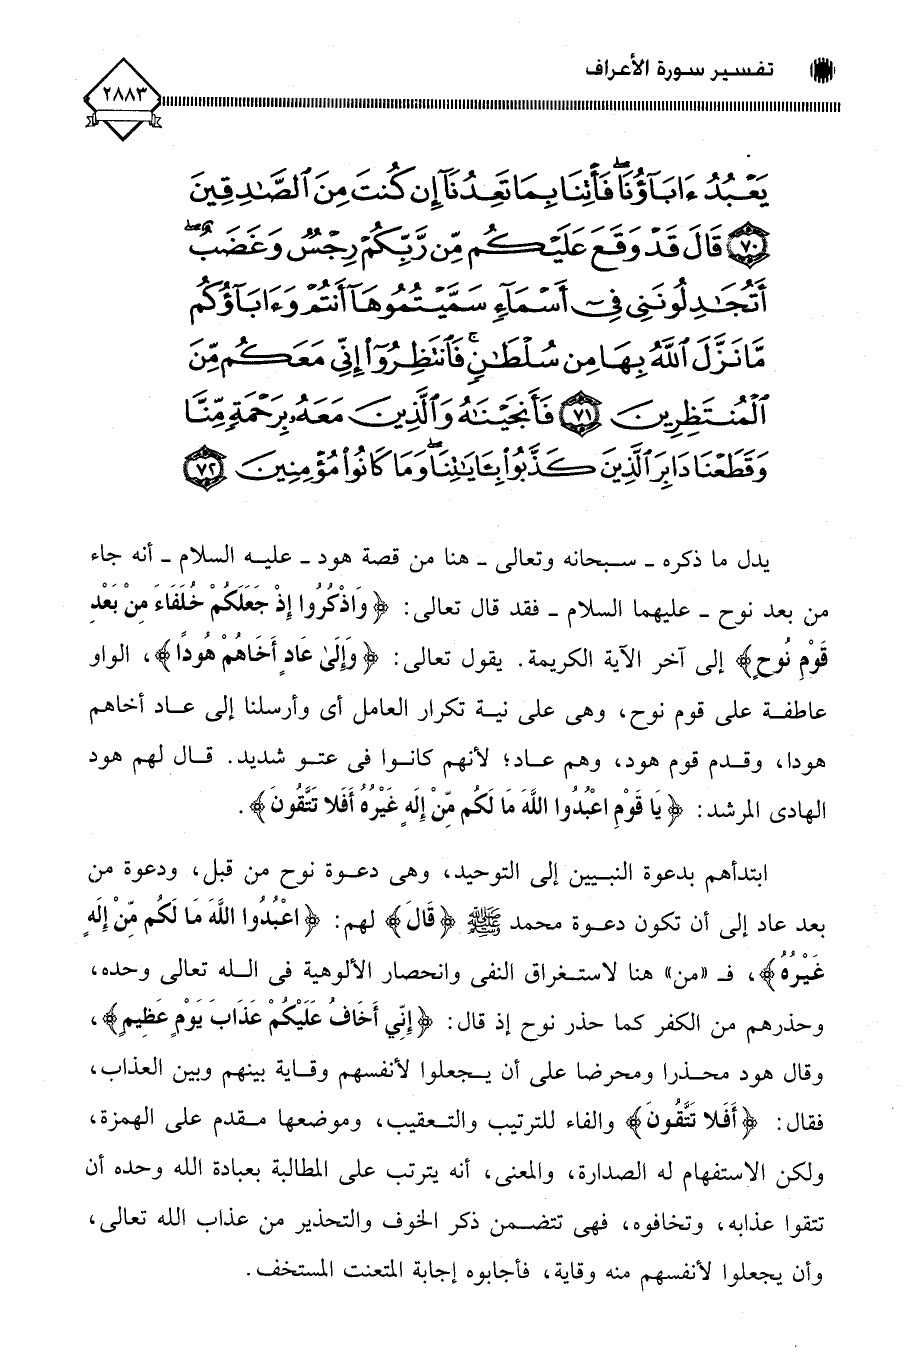 تفسير سورة الأعراف
٢٨٨٣
يَعْبُدُ ءَابَآؤُنَا ۖ فَأْتِنَا بِمَا تَعِدُنَآ إِن كُنتَ مِنَ ٱلصَّٰدِقِينَ
٧٠ قَالَ قَدْ وَقَعَ عَلَيْكُم مِّن رَّبِّكُمْ رِجْسٌ وَغَضَبٌ ۖ
أَتُجَٰدِلُونَنِى فِىٓ أَسْمَآءٍ سَمَّيْتُمُوهَآ أَنتُمْ وَءَابَآؤُكُم
مَّا نَزَّلَ ٱللَّهُ بِهَا مِن سُلْطَٰنٍ ۚ فَٱنتَظِرُوٓا۟ إِنِّى مَعَكُم مِّنَ
ٱلْمُنتَظِرِينَ ٧١ فَأَنجَيْنَٰهُ وَٱلَّذِينَ مَعَهُۥ بِرَحْمَةٍ مِّنَّا
وَقَطَعْنَا دَابِرَ ٱلَّذِينَ كَذَّبُوا۟ بِـَٔايَٰتِنَا ۖ وَمَا كَانُوا۟ مُؤْمِنِينَ ٧٢
يدل ما ذكره ـ سبحانه وتعالى ـ هنا من قصة هود ـ عليه السلام ـ أنه جاء
من بعد نوح ـ عليهما السلام ـ فقد قال تعالى: ﴿وَاذْكُرُوا إِذْ جَعَلَكُمْ خُلَفَاءَ مِنْ بَعْدِ
قَوْمِ نُوحٍ﴾ إلى آخر الآية الكريمة. يقول تعالى: ﴿وَإِلَىٰ عَادٍ أَخَاهُمْ هُودًا﴾، الواو
عاطفة على قوم نوح، وهى على نية تكرار العامل أى وأرسلنا إلى عاد أخاهم
هودا، وقدم قوم هود، وهم عاد؛ لأنهم كانوا فى عتو شديد. قال لهم هود
الهادى المرشد: ﴿يَا قَوْمِ اعْبُدُوا اللَّهَ مَا لَكُم مِّنْ إِلَهٍ غَيْرُهُ أَفَلا تَتَّقُونَ﴾.
ابتدأهم بدعوة النبيين إلى التوحيد، وهى دعوة نوح من قبل، ودعوة من
بعد عاد إلى أن تكون دعوة محمد ﷺ ﴿قَالَ﴾ لهم: ﴿اعْبُدُوا اللَّهَ مَا لَكُم مِّنْ إِلَهٍ
غَيْرُهُ﴾، فـ «من» هنا لاستغراق النفى وانحصار الألوهية فى الله تعالى وحده،
وحذرهم من الكفر كما حذر نوح إذ قال: ﴿إِنِّي أَخَافُ عَلَيْكُمْ عَذَابَ يَوْمٍ عَظِيمٍ﴾،
وقال هود محذرا ومحرضا على أن يجعلوا لأنفسهم وقاية بينهم وبين العذاب،
فقال: ﴿أَفَلا تَتَّقُونَ﴾ والفاء للترتيب والتعقيب، وموضعها مقدم على الهمزة،
ولكن الاستفهام له الصدارة، والمعنى، أنه يترتب على المطالبة بعبادة الله وحده أن
تتقوا عذابه، وتخافوه، فهى تتضمن ذكر الخوف والتحذير من عذاب الله تعالى،
وأن يجعلوا لأنفسهم منه وقاية، فأجابوه إجابة المتعنت المستخف.